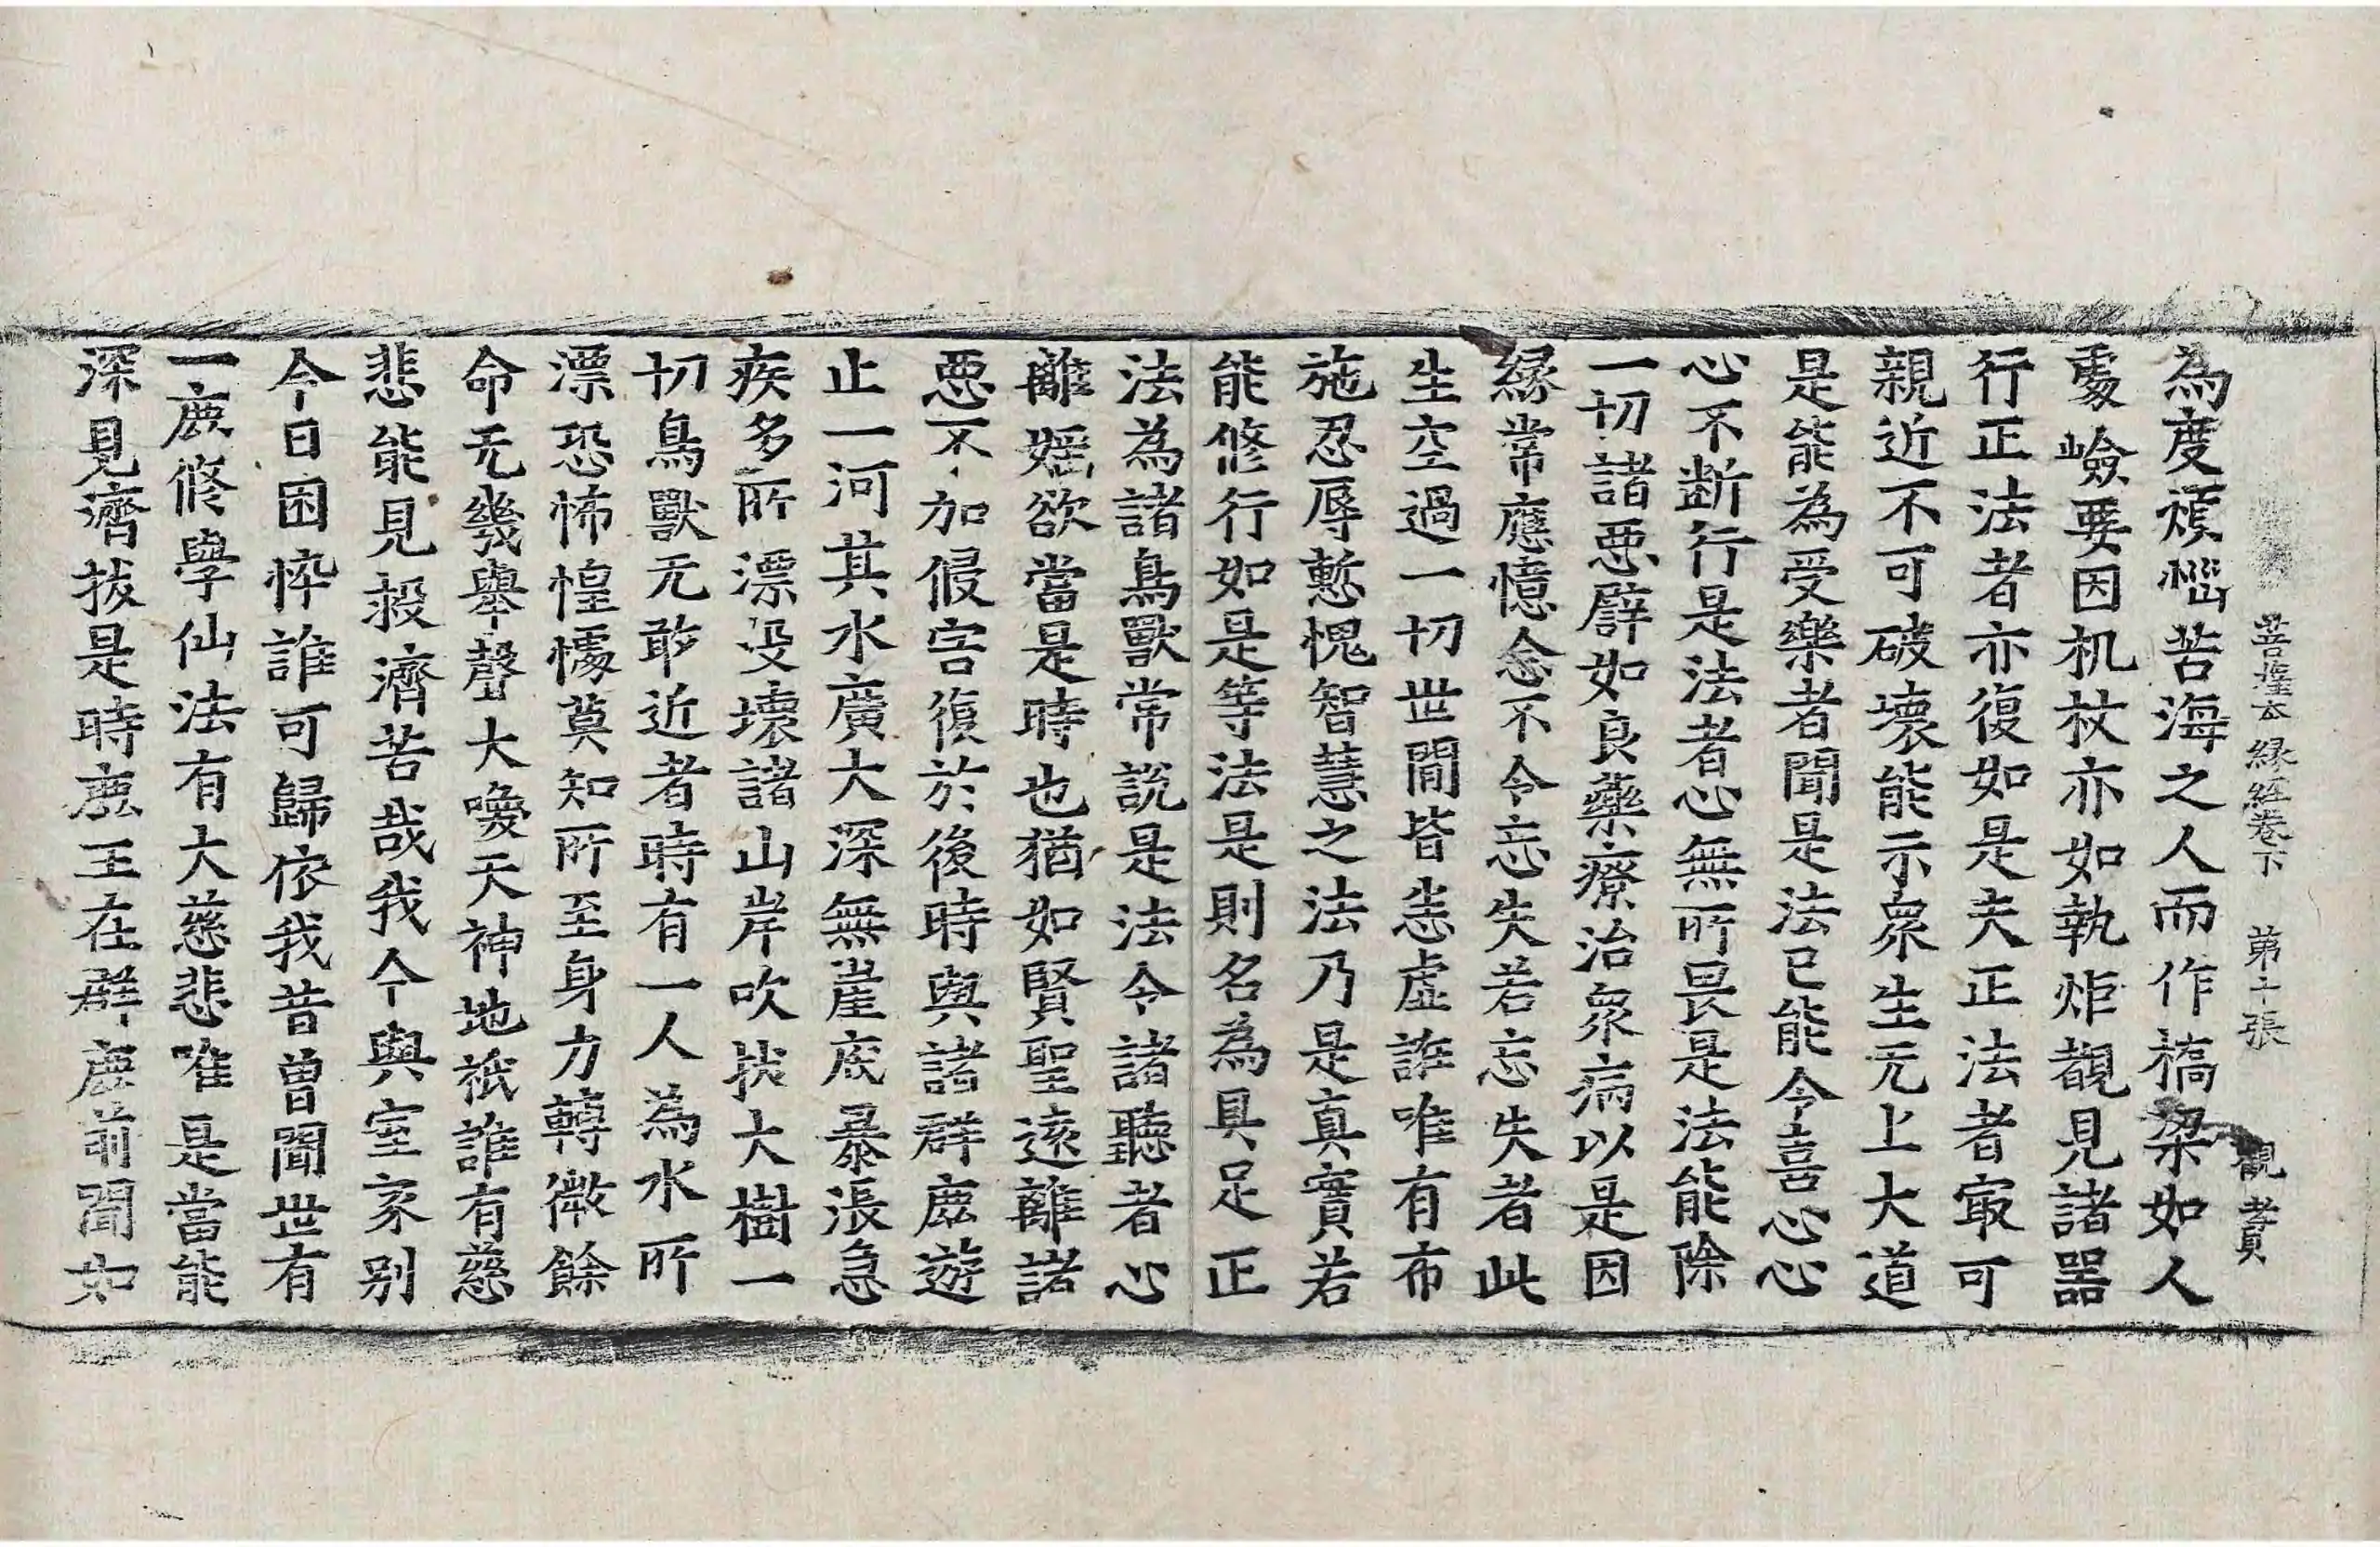 菩薩本緣經卷下　第十張　觀賮
為度煩惱苦海之人而作橋梁如人
處嶮要因机杖亦如執炬覩見諸器
行正法者亦復如是夫正法者㝡可
親近不可破壞能示眾生无上大道
是能為受樂者聞是法已能令喜心心
心不斷行是法者心無所畏是法能除
一切諸惡譬如良藥療治眾病以是因
緣常應憶念不令忘失若忘失者此
生空過一切世間皆恙虛誑唯有布
施忍辱慙愧智慧之法乃是真實若
能修行如是等法是則名為具足正
法為諸鳥獸常說是法令諸聽者心
離婬欲當是時也猶如賢聖遠離諸
惡不加侵害復於後時與諸群鹿遊
止一河其水廣大深無崖底暴漲急
疾多所漂沒壞諸山岸吹拔大樹一
切鳥獸无敢近者時有一人為水所
漂恐怖惶懅莫知所至身力轉微餘
命无幾舉聲大喚天神地祇誰有慈
悲能見救濟苦哉我今與室家別
今日困悴誰可歸依我昔曾聞世有
一鹿修學仙法有大慈悲唯是當能
深見濟拔是時鹿王在群鹿前聞如